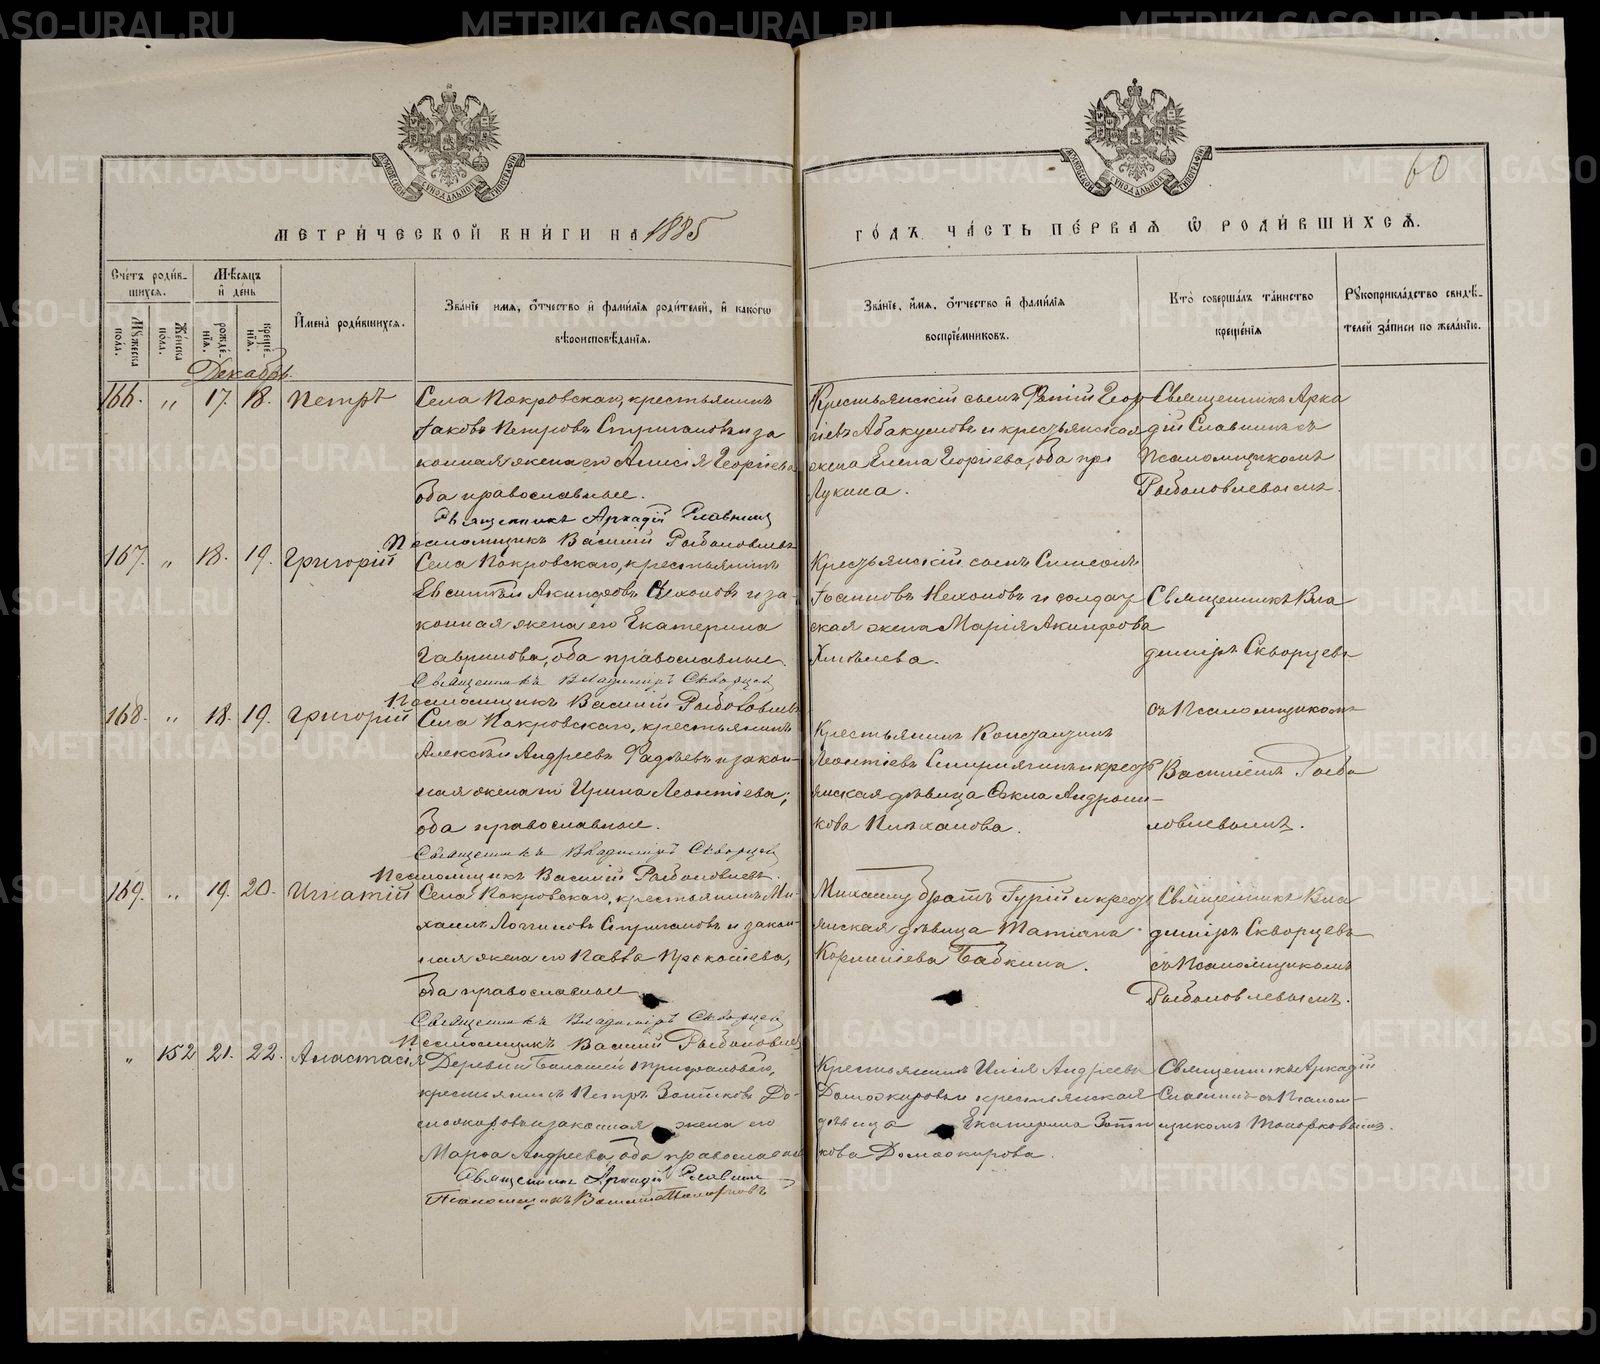 60
МЕТРИ́ЧЕСКОЙ КНИ́ГИ НА 1885
ГО́ДЪ ЧА́СТЬ ПЕ́РВАЯ Ѿ РОДИ́ВШИХСѦ.
Сче́тъ роди́вшихся.
Мѣсяцъ и де́нь
Мужеска пола.
Женска пола.
рожде́нїя.
креще́нїя.
Имена̀ роди́вшихся.
Зва́нїе имя, о́тчество и фами́лїя роди́телей, и како́гѡ
вѣроисповѣ́данїя.
Зва́нїе, и́мя, о́тчество и фами́лїя
воспрїе́мниковъ.
Кто̀ соверша́лъ та́инство
креще́нїя
Рукоприкла́дство свидѣ́телей за́писи по жела́нїю.
Декабрь.
166. " 17. 18. Петръ
Села Покровскаго, крестьянинъ
Іаковъ Петровъ Стригановъ и за
конная жена его Анисія Георгіева
оба православные.
Священникъ Аркадій Славнинъ
Псаломщикъ Василій Рыболовлевъ
Крестьянскій сынъ Фотій Геор
гіевъ Абакумовъ и крестьянская
жена Елена Георгіева, оба пра
Лукина.
Священникъ Арка
дій Славнинъ съ
Псаломщикомъ
Рыболовлевымъ.
167. " 18. 19. Григорій
Села Покровскаго, крестьянинъ
Евсигній Акиндиновъ Нехоновъ и за-
конная жена его Екатерина
Гаврилова, оба православные.
Священникъ Владиміръ Скворцевъ
Псаломщикъ Василій Рыболовлевъ
Крестьянскій сынъ Симеонъ
Іоанновъ Нехоновъ и солдат
ская жена Марія Акиндинова
Хмѣлева.
Священникъ Вла
диміръ Скворцевъ
168. " 18. 19. Григорій
Села Покровскаго, крестьянинъ
Алексѣй Андреевъ Фадѣевъ и закон-
ная жена его Ирина Леонтіева;
оба православные.
Священникъ Владиміръ Скворцевъ
Псаломщикъ Василій Рыболовлевъ.
Крестьянинъ Константинъ
Леонтіевъ и крест
янская дѣвица Ѳекла Андрони-
кова
съ Псаломщикомъ
Василіемъ Рыбо
ловлевымъ.
169. " 19. 20. Игнатій
Села Покровскаго, крестьянинъ Ми-
хаилъ Логгиновъ Стригановъ и закон-
ная жена его Павла Прокопіева,
оба православные
Священникъ Владиміръ Скворцевъ
Псаломщикъ Василій Рыболовлевъ
Михаилу братъ Гурій и крест
янская дѣвица Татіана
Корниліева Бабкина.
Священникъ Вла
диміръ Скворцевъ
съ Псаломщикомъ
Рыболовлевымъ.
" 152 21. 22. Анастасія
Деревни Балашей Трифановой,
крестьянинъ Петръ Зотиковъ До-
можировъ и законная жена его
Марѳа Андреева, оба православные
Священникъ Аркадій Славнинъ
Псаломщикъ Василій Топорковъ
Крестьянинъ Илія Андреевъ
Доможировъ и крестьянская
дѣвица Екатерина Зоти
кова Доможирова.
Священникъ Аркадій
Славнинъ съ Псалом-
щикомъ Топорковымъ.